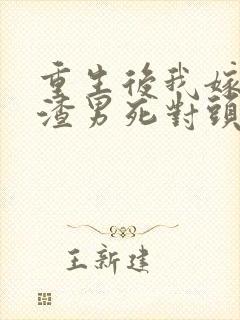 重生後我嫁
渣男死對頭
王新建